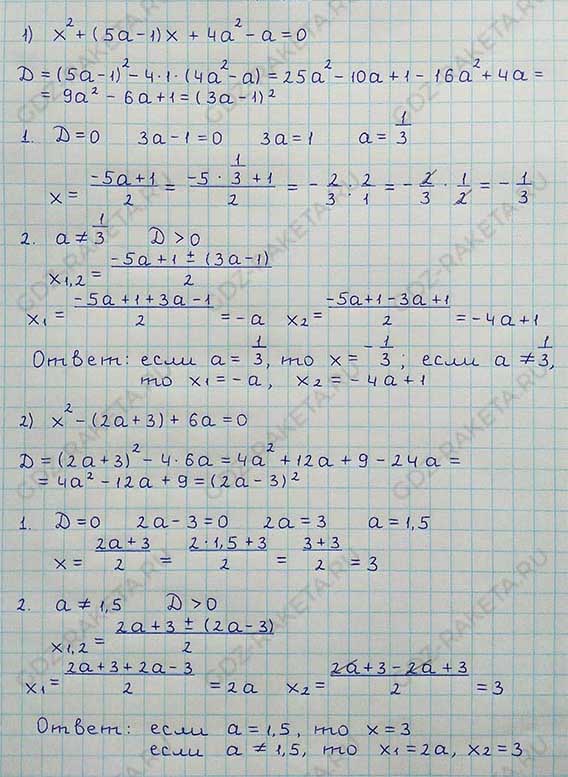 1) x² + (5a-1)x + 4a² - a = 0
D = (5a-1)² - 4·1·(4a² - a) = 25a² - 10a + 1 - 16a² + 4a =
= 9a² - 6a + 1 = (3a-1)²
1. D = 0 3a - 1 = 0 3a = 1 a = 1/3
x = (-5a+1)/2 = (-5 · 1/3 + 1)/2 = - 2/3 : 2/1 = - 2/3 · 1/2 = - 1/3
2. a ≠ 1/3 D > 0
x1,2 = (-5a + 1 ± (3a-1))/2
x1 = (-5a + 1 + 3a - 1)/2 = -a x2 = (-5a + 1 - 3a + 1)/2 = -4a + 1
Ответ: если a = 1/3, то x = - 1/3; если a ≠ 1/3,
то x1 = -a, x2 = -4a + 1
2) x² - (2a+3) + 6a = 0
D = (2a+3)² - 4·6a = 4a² + 12a + 9 - 24a =
= 4a² - 12a + 9 = (2a-3)²
1. D = 0 2a - 3 = 0 2a = 3 a = 1,5
x = (2a+3)/2 = (2·1,5 + 3)/2 = (3+3)/2 = 3
2. a ≠ 1,5 D > 0
x1,2 = (2a + 3 ± (2a-3))/2
x1 = (2a + 3 + 2a - 3)/2 = 2a x2 = (2a + 3 - 2a + 3)/2 = 3
Ответ: если a = 1,5, то x = 3
если a ≠ 1,5, то x1 = 2a, x2 = 3
GDZ-RAKETA.RU